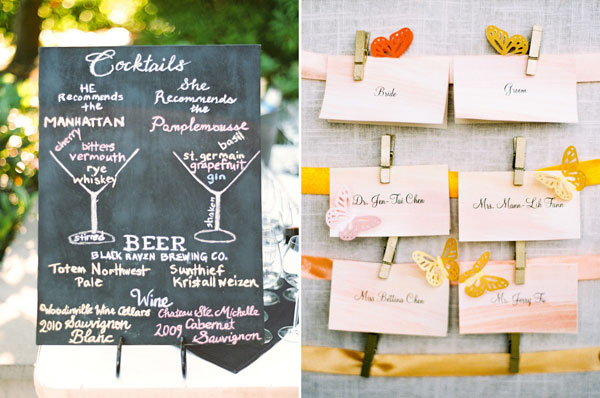 Cocktails
HE She
Recommends Recommends the
the
MANHATTAN Pamplemousse
cherry basil
bitters st. germain
vermouth grapefruit
rye gin
whiskey
shaken
stirred
BEER
BLACK RAVEN BREWING CO.
Totem Northwest Sunthief
Pale Kristall Weizen
Wine
Woodinville Wine Cellars Chateau Ste. Michelle
2010 Sauvignon 2009 Cabernet
Blanc Sauvignon
Bride Groom
Dr. Jen-Tai Chen Mrs. Mann-Lih Fann
Miss Bettina Chen Mr. Jerry Fu